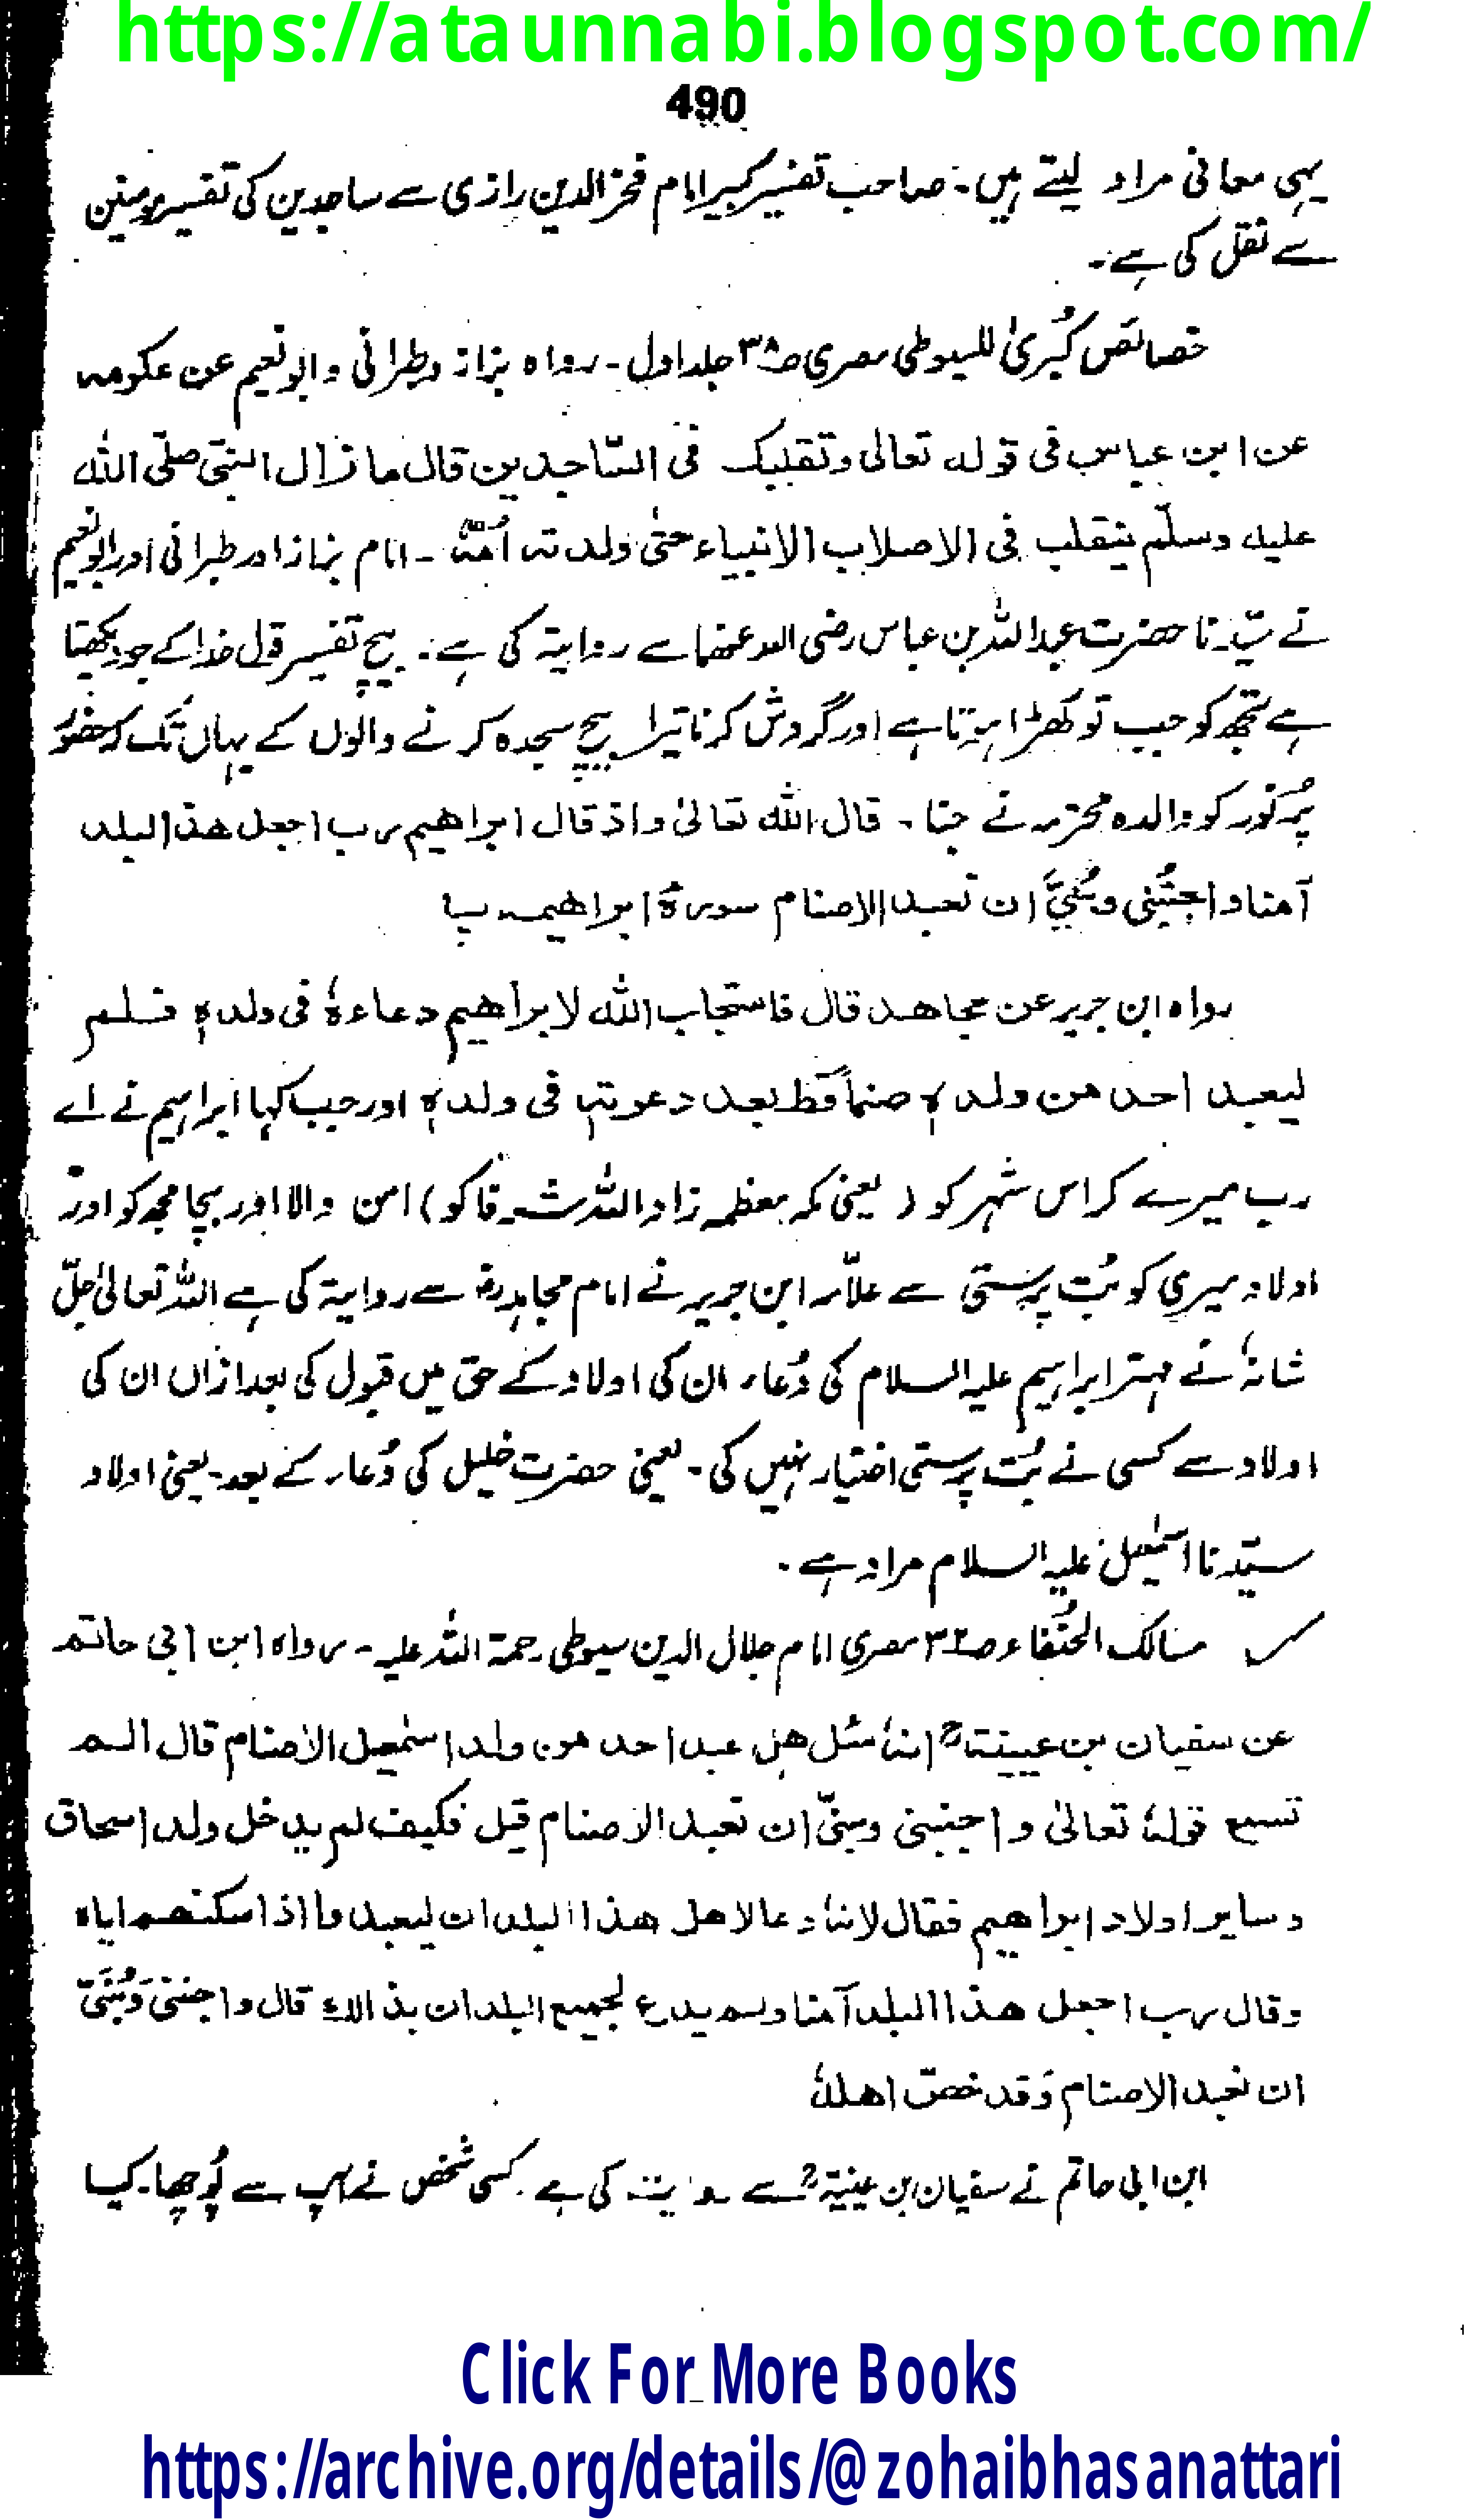 https://ataunnabi.blogspot.com/
490
یہی معانی مراد لیتے ہیں۔ صاحب تفسیر کبیر امام فخر الدین رازی سے ساجدین کی تفسیر مومنین
سے نقل کی ہے۔
خصائص کُبریٰ للسیوطی مصری ص۳۸ جلد اول۔ رواہ بزاز وطبرانی و ابو نعیم عن عکرمہ
عن ابن عباس فی قولہ تعالی وتقلبک فی السّاجدین قال ما زال النبیّ صلّی اللہ
علیہ وسلّم یتقلب فی الاصلاب الانبیاء حتیٰ ولدتہ اُمّہٗ ۔ امام بزاز اور طبرانی اور ابو نعیم
نے سیّدنا حضرت عبداللہ بن عباس رضی اللہ عنھما سے روایۃ کی ہے۔ بیچ تفسیر قول خدا کے جو دیکھتا
ہے تجھ کو جب تو کھڑا ہوتا ہے اور گردش کرنا تیرا بیچ سجدہ کرنے والوں کے یہاں تک کہ حضورُ
پُر نور کو والدہ محترمہ نے جنا۔ قال اللہ تعالیٰ واذ قال ابراھیم رب اجعل ھذا البلد
آمنا واجنُبنی وبَنِیَّ ان نعبد الاصنام سورۃ ابراھیم
رواہ ابن جریر عن مجاھد قال فاستجاب اللہ لابراھیم دعاءہٗ فی ولدہٖ فلم
لیعبد احد من ولدہٖ صنماً قط بعد دعوتہٖ فی ولدہٖ اور جب کہا ابراہیم نے اے
رب میرے کر اس شہر کو (یعنی مکہ معظمہ زاد اللہ شرفا کو) امن والا اور بچا مجھ کو اور
اولاد میری کو بُت پرستی سے علاّمہ ابن جریر نے امام مجاہد سے روایۃ کی ہے اللہ تعالیٰ جلّ
شانہٗ نے مہتر ابراہیم علیہ السلام کی دُعاء ان کی اولاد کے حق میں قبول کی بعد ازاں ان کی
اولاد سے کسی نے بُت پرستی اختیار نہیں کی۔ یعنی حضرت خلیل کی دُعاء کے بعد۔ یعنی اولاد
سیّدنا اسمٰعیل علیہ السلام مراد ہے۔
مسالک الحنُفاء ص۳۲ مصری امام جلال الدین سیوطی رحمۃ اللہ علیہ۔ رواہ ابن ابی حاتم
عن سفیان بن عیینۃ انہٗ سُئل ھل عبد احد من ولد اسمٰعیل الاصنام قال الم
تسمع قولہٗ تعالیٰ واجنبنی وبنیّ ان نعبد الاصنام قیل فکیف لم یدخل ولد اسحاق
و سایر اولاد ابراھیم فقال لانہٗ دعا لاھل ھذا البلد ان لیعبدوا اذا سکنھم ایاہ
وقال رب اجعل ھذا البلد آمنا ولم یدع لجمیع البلدان بذالاء قال واجنبنی وَبَنِیَّ
ان نعبد الاصنام وَقد خصّ اھلہٗ
ابن ابی حاتم نے سفیان بن عیینۃ سے روایت کی ہے۔ کسی شخص نے آپ سے پُوچھا۔ کیا
Click For More Books
https://archive.org/details/@zohaibhasanattari